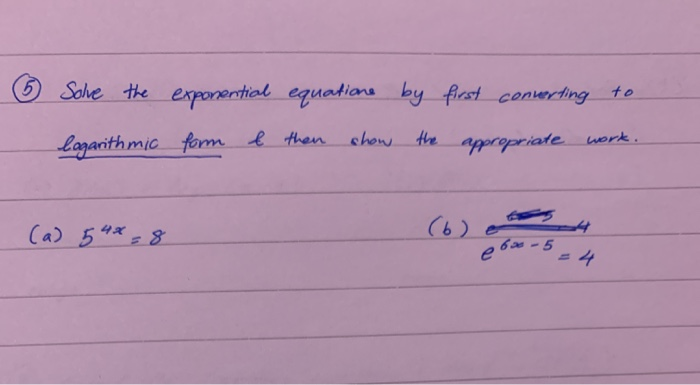 ⑤ Solve the exponential equations by first converting to
logarithmic form & then show the appropriate work.
(a) 5^4x = 8
(b)
e^6x-5 = 4